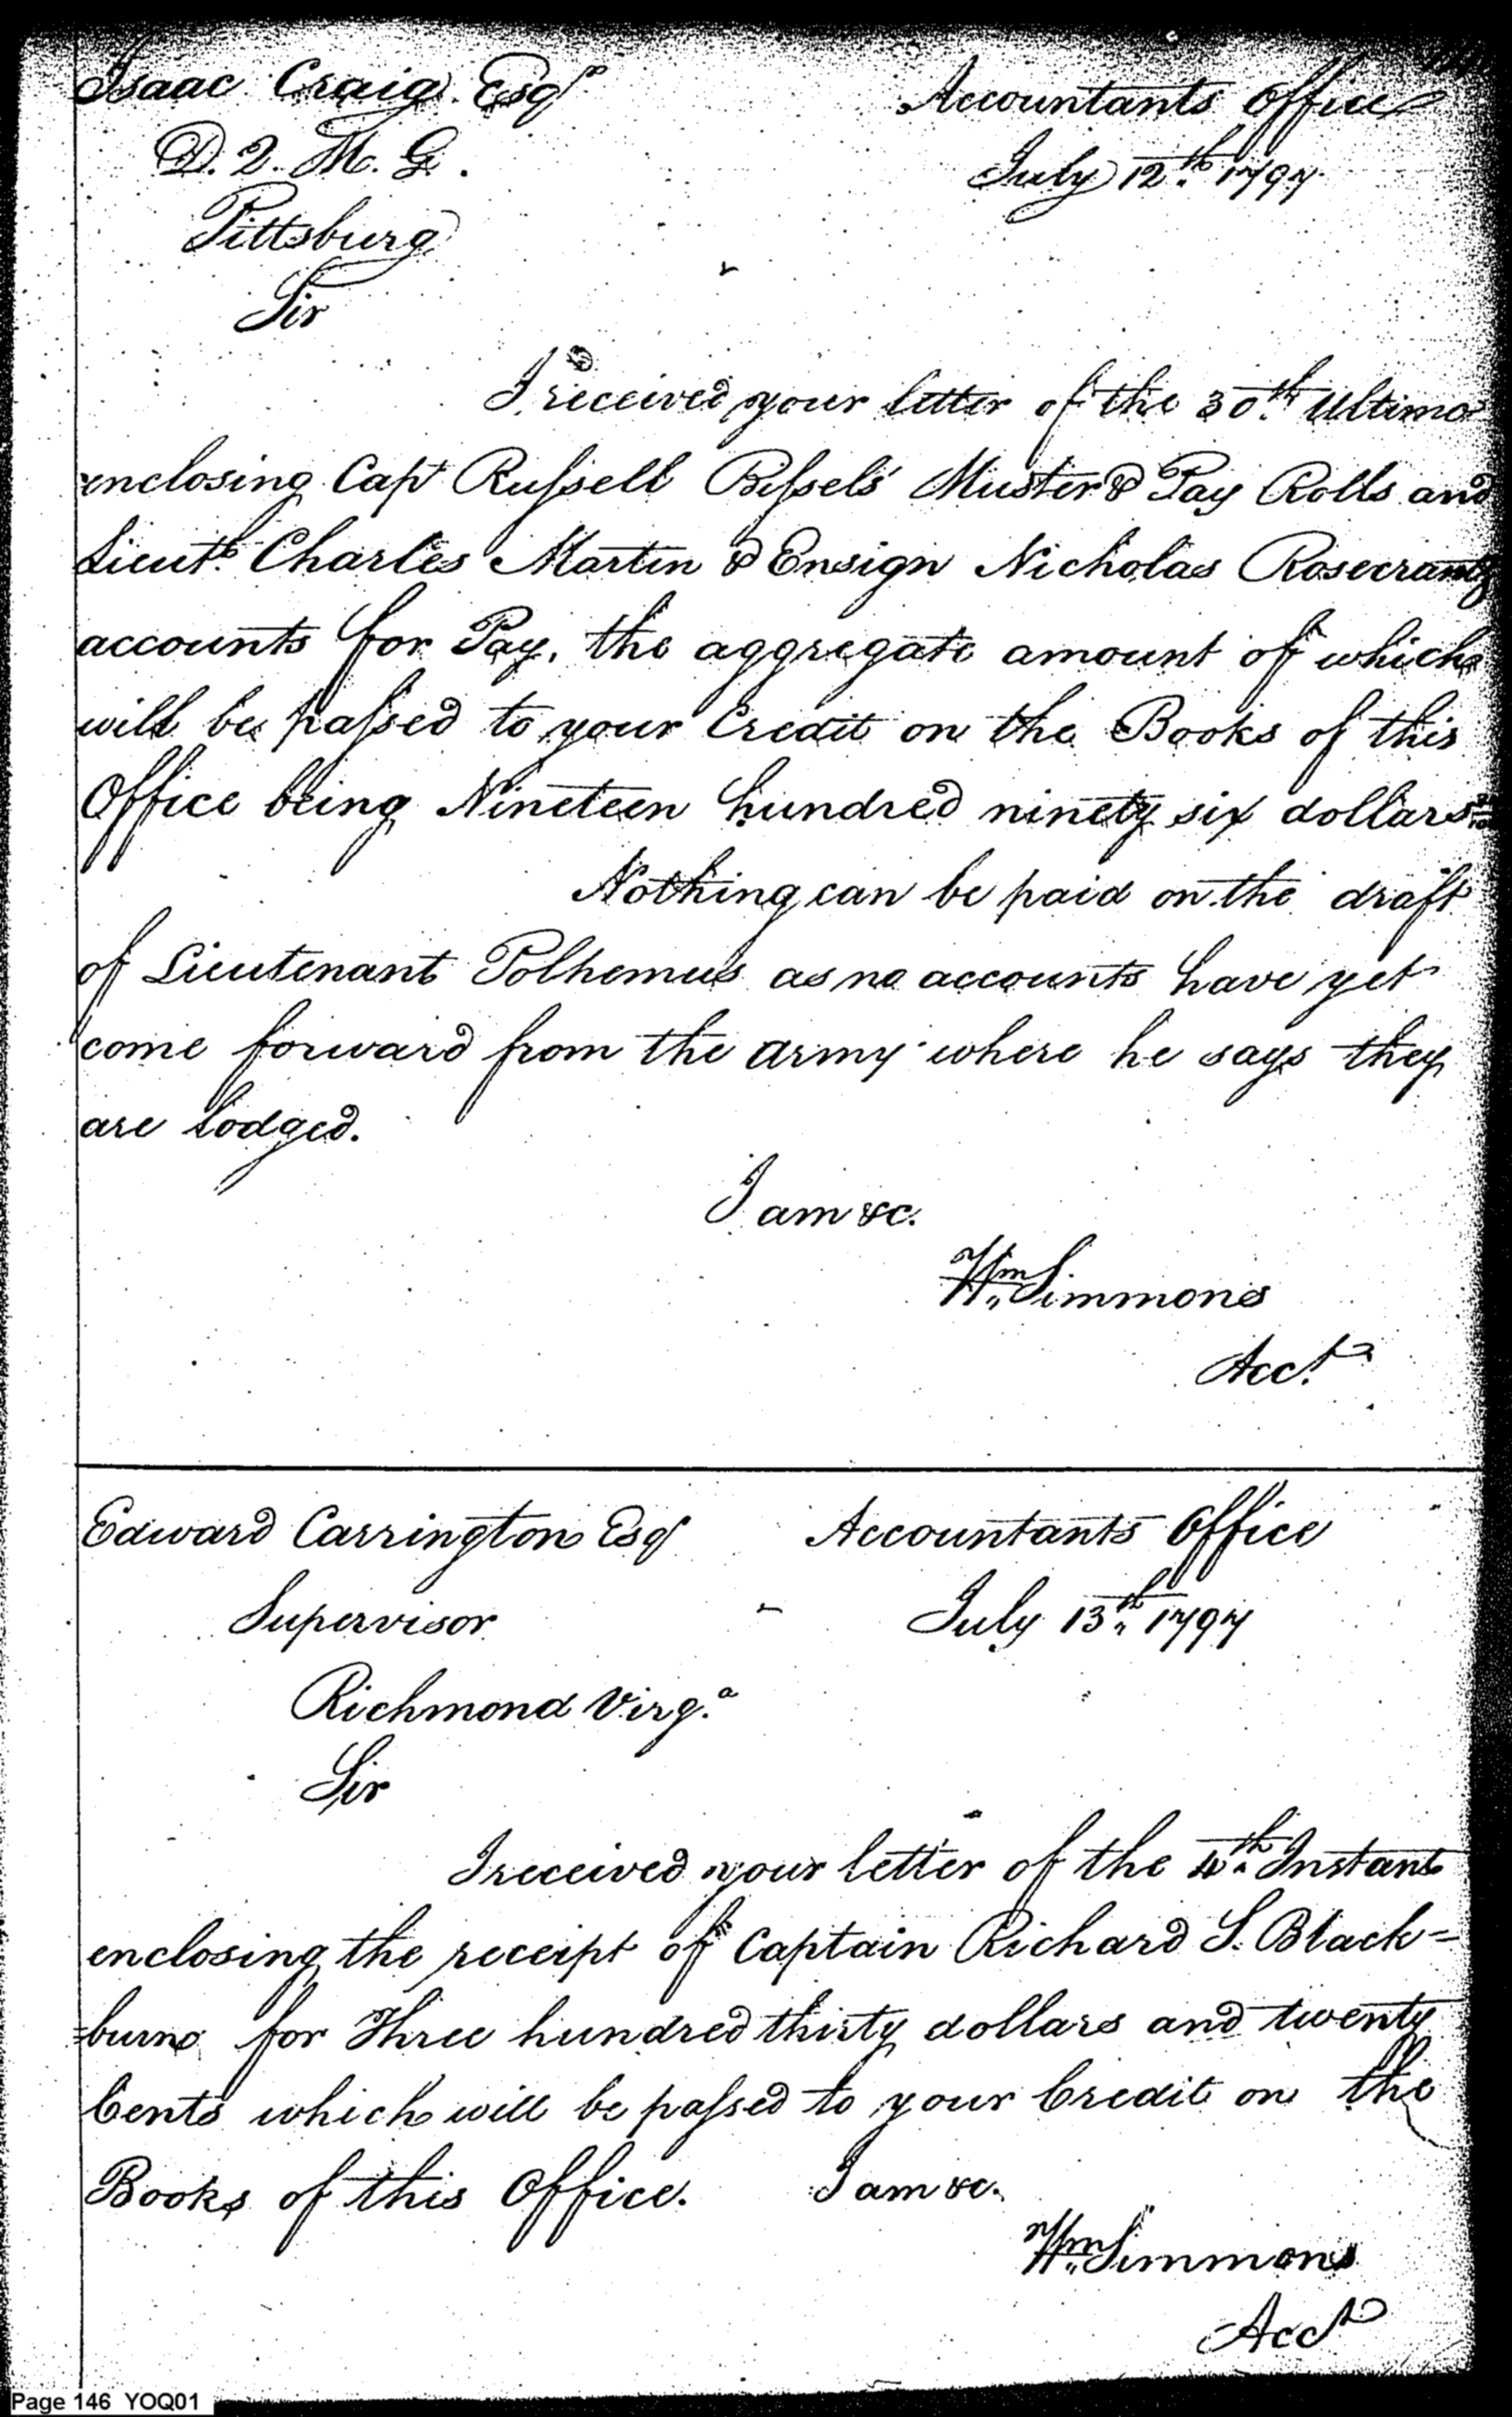 Isaac Craig Esqr
Accountants Office
D. Q. M. G.
July 12th. 1797
Pittsburg
Sir
I received your letter of the 30th. Ultimo
enclosing Capt Russell Bissels' Muster & Pay Rolls and
Lieutt. Charles Martin & Ensign Nicholas Rosecrantz
accounts for Pay, the aggregate amount of which
will be passed to your Credit on the Books of this
Office being Nineteen hundred ninety six dollars
Nothing can be paid on the draft
of Lieutenant Polhemus as no accounts have yet
come forward from the army where he says they
are lodged.
I am &c.
Wm. Simmons
Acct.
Edward Carrington Esqr
Accountants Office
Supervisor
July 13th. 1797
Richmond Virg.a
Sir
I received your letter of the 4th. Instant
enclosing the receipt of Captain Richard S. Black=
=burne for Three hundred thirty dollars and twenty
Cents which will be passed to your Credit on the
Books of this Office. I am &c.
Wm. Simmons
Acct
Page 146 YOQ01